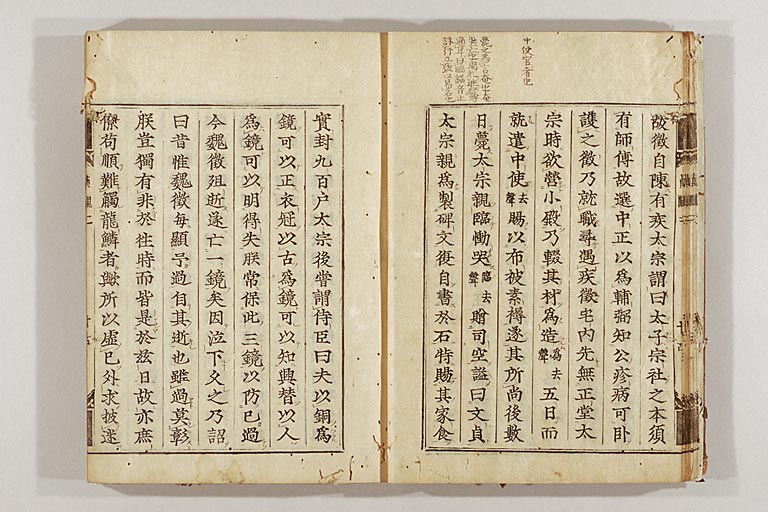 中使官者也
陞徵自陳有疾太宗謂曰太子宗社之本須
有師傅故選中正以為輔弼知公疹病可卧
護之徵乃就職尋遇疾徵宅內先無正堂太
宗時欲營小殿乃輟其材為造為去聲五日而
就遣中使去聲賜以布被素褥遂其所尚後數
日薨太宗親臨慟哭臨去聲贈司空謚曰文貞
太宗親為製碑文復自書於石特賜其家食
實封九百户太宗後嘗謂侍臣曰夫以銅為
鏡可以正衣冠以古為鏡可以知興替以人
為鏡可以明得失朕常保此三鏡以防已過
今魏徵殂逝遂亡一鏡矣因泣下久之乃詔
曰昔惟魏徵每顯予過自其逝也雖過莫彰
朕豈獨有非於往時而皆是於兹日故亦庶
僚苟順難觸龍鱗者歟所以虛已外求披迷